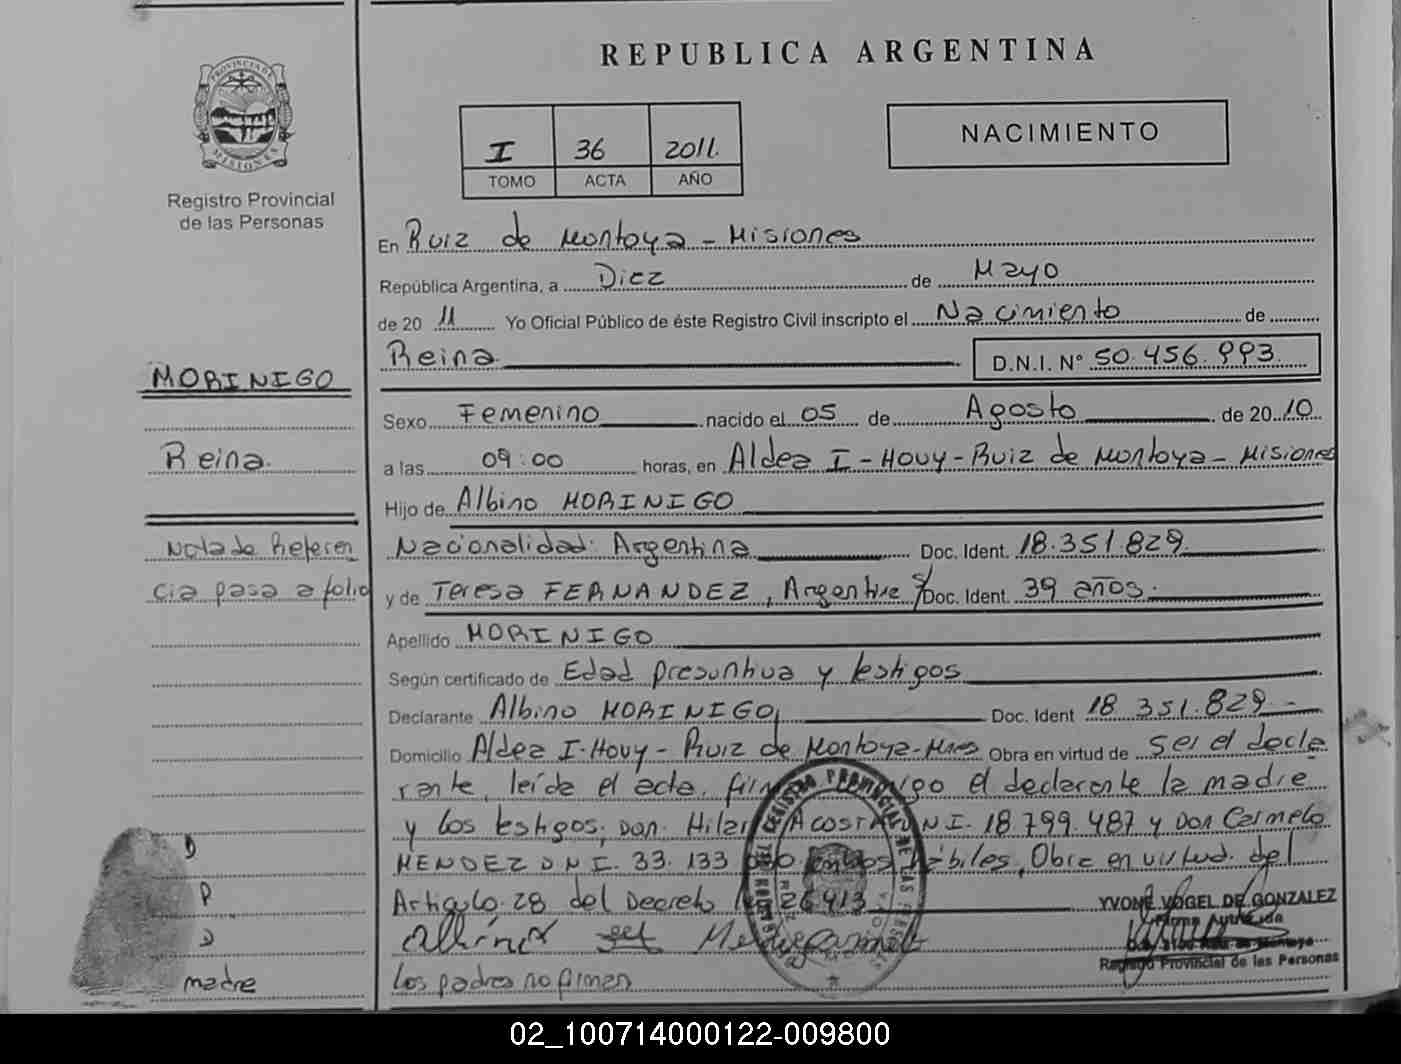 REPUBLICA ARGENTINA
PROVINCIA DE MISIONES
Registro Provincial
de las Personas
I 36 2011.
TOMO ACTA AÑO
NACIMIENTO
En Ruiz de Montoya - Misiones
República Argentina, a Diez de Mayo
de 20 11 Yo Oficial Público de éste Registro Civil inscripto el Nacimiento de
Reina. D.N.I. Nº 50.456.993.
MORINIGO
Sexo Femenino nacido el 05 de Agosto de 20 10
Reina.
a las 09:00 horas, en Aldea I - Houy - Ruiz de Montoya - Misiones
Hijo de Albino MORINIGO
Nota de Referen
Nacionalidad: Argentina Doc. Ident. 18.351.829.
cia pasa a folio
y de Teresa FERNANDEZ, Argentina s/ Doc. Ident. 39 años.
Apellido MORINIGO
Según certificado de Edad presuntiva y testigos
Declarante Albino MORINIGO, Doc. Ident 18 351.829 -
Domicilio Aldea I - Houy - Ruiz de Montoya - Mnes Obra en virtud de ser el decla
rante, leída el acta, el declarante la madre
y los testigos, Don. Acosta D.N.I. 18.799.487 y Don Carmelo
MENDEZ DNI. 33.133 hábiles, Obra en virtud. del
Articulo 28 del Decreto 26413
YVONE VOGEL DE GONZALEZ
Firma Autorizada
Registro Provincial de las Personas
los padres no firman
D
P
D
madre
REGISTRO PROVINCIAL DE LAS PERSONAS
02_100714000122-009800